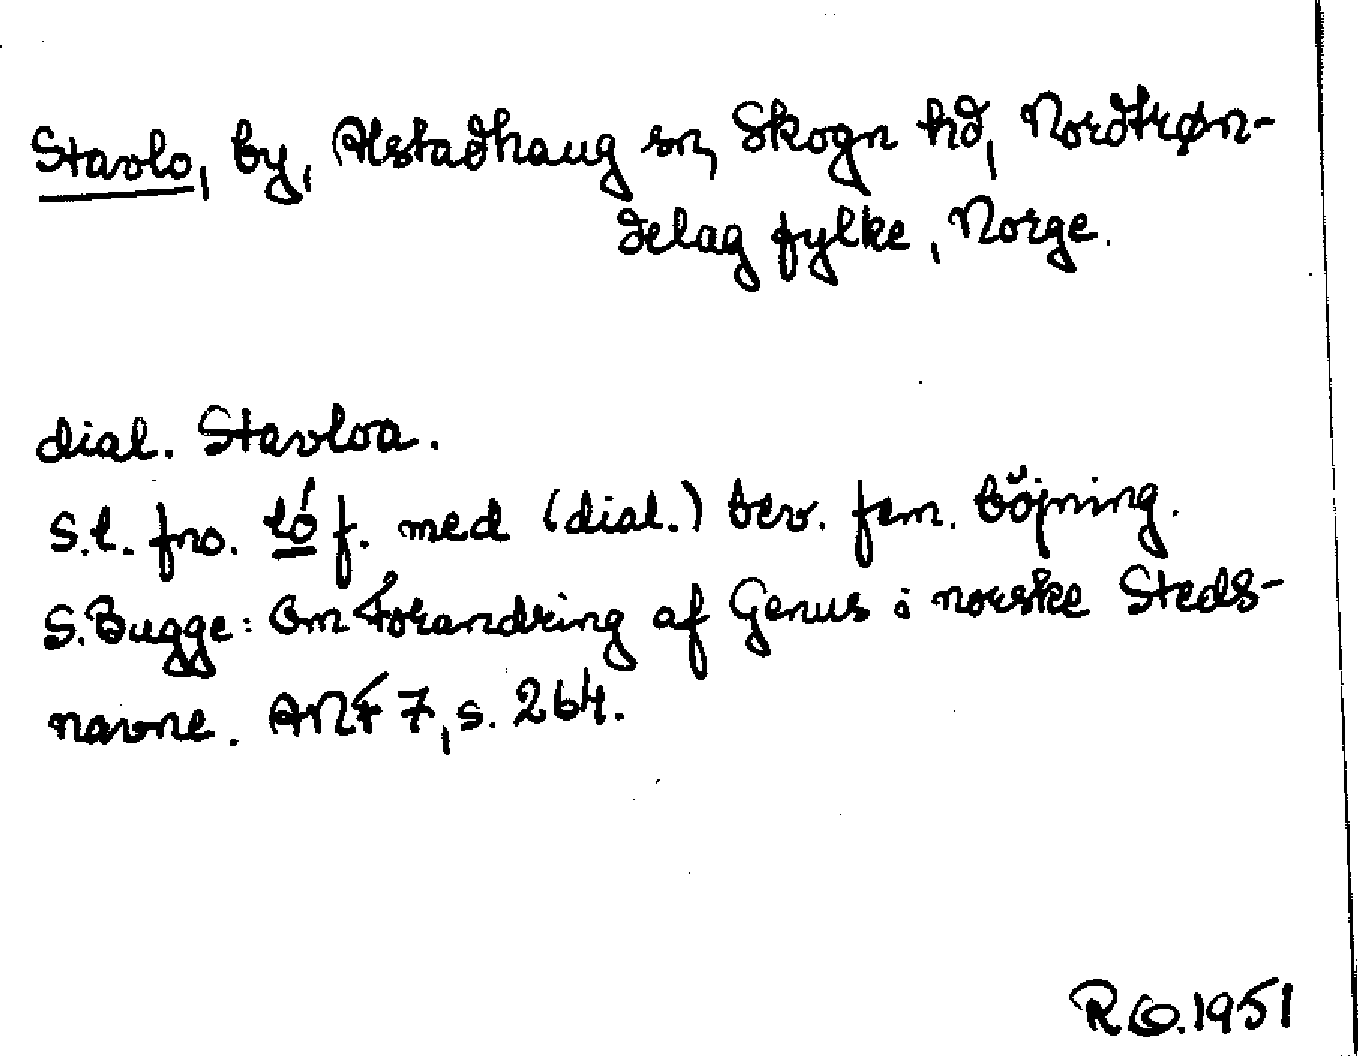 Stavlo, by, Alstadhaug sn, Skogn hd, Nordtrøn-
delag fylke, Norge.
dial. Stavloa.
S.l. fno. ló f. med (dial.) bev. fem. böjning.
S. Bugge: Om Forandring af Genus i norske Steds-
navne. ANF 7, s. 264.
1951